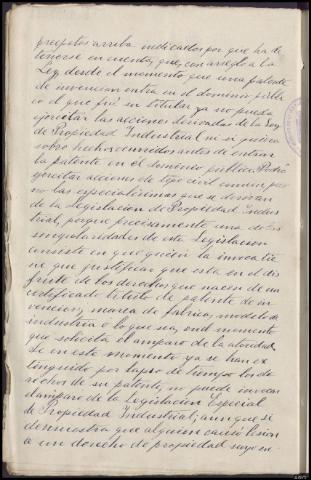 preceptos arriba indicados por que ha de
tenerse en cuenta, que, con arreglo a la
Ley desde el momento que una patente
de invencion entra en el dominio públi
co el que fué su titular ya no puede
ejercitar las acciones derivadas de la Ley
de Propiedad Industrial ni si quiera
sobre hechos ocurridos antes de entrar
la patente en el dominio público. Podrá
ejercitar acciones de tipo civil comun, pero
no las especialísimas que se derivan
de la Legislacion de Propiedad Indus
trial, porque precisamente una de las
singularidades de esta Legislacion
consiste en que quien la invoca tie
ne que justificar que está en el dis
frute de los derechos que nacen de un
certificado titulo de patente de in
vencion, marca de fabrica, modelo de
industria o lo que sea, en el momento
que solicita el amparo de la autoridad.
Si en este momento ya se han ex
tinguido por lapso de tiempo los de
rechos de su patente, no puede invocar
el amparo de la Legislacion Especial
de Propiedad Industrial; aunque se
demuestre que alguien causó lesion
a un derecho de propiedad suyo en